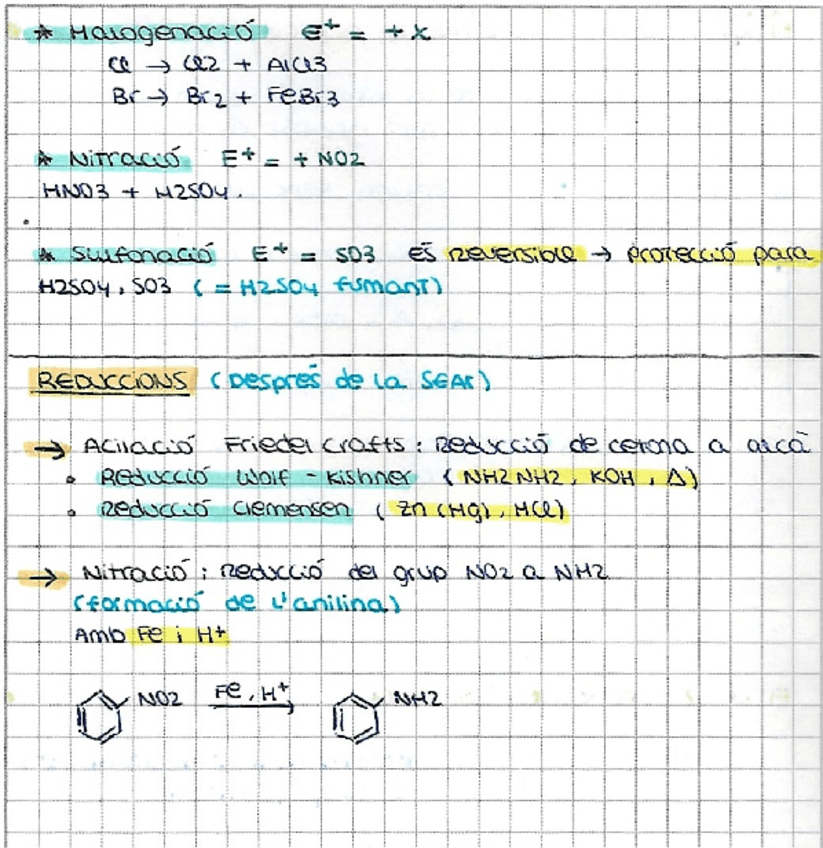 * Halogenació E+ = +X
Cl → Cl2 + AlCl3
Br → Br2 + FeBr3
* Nitració E+ = + NO2
HNO3 + H2SO4.
* Sulfonació E+ = SO3 és reversible → protecció para
H2SO4, SO3 (= H2SO4 fumant)
REDUCCIONS (Després de la SEAr)
→ Acilació Friedel Crafts: Reducció de cetona a alcà
• Reducció Wolf - Kishner (NH2NH2, KOH, Δ)
• Reducció Clemensen (Zn (Hg), HCl)
→ Nitració: Reducció del grup NO2 a NH2
(formació de l'anilina)
Amb Fe i H+
NO2 Fe, H+ NH2